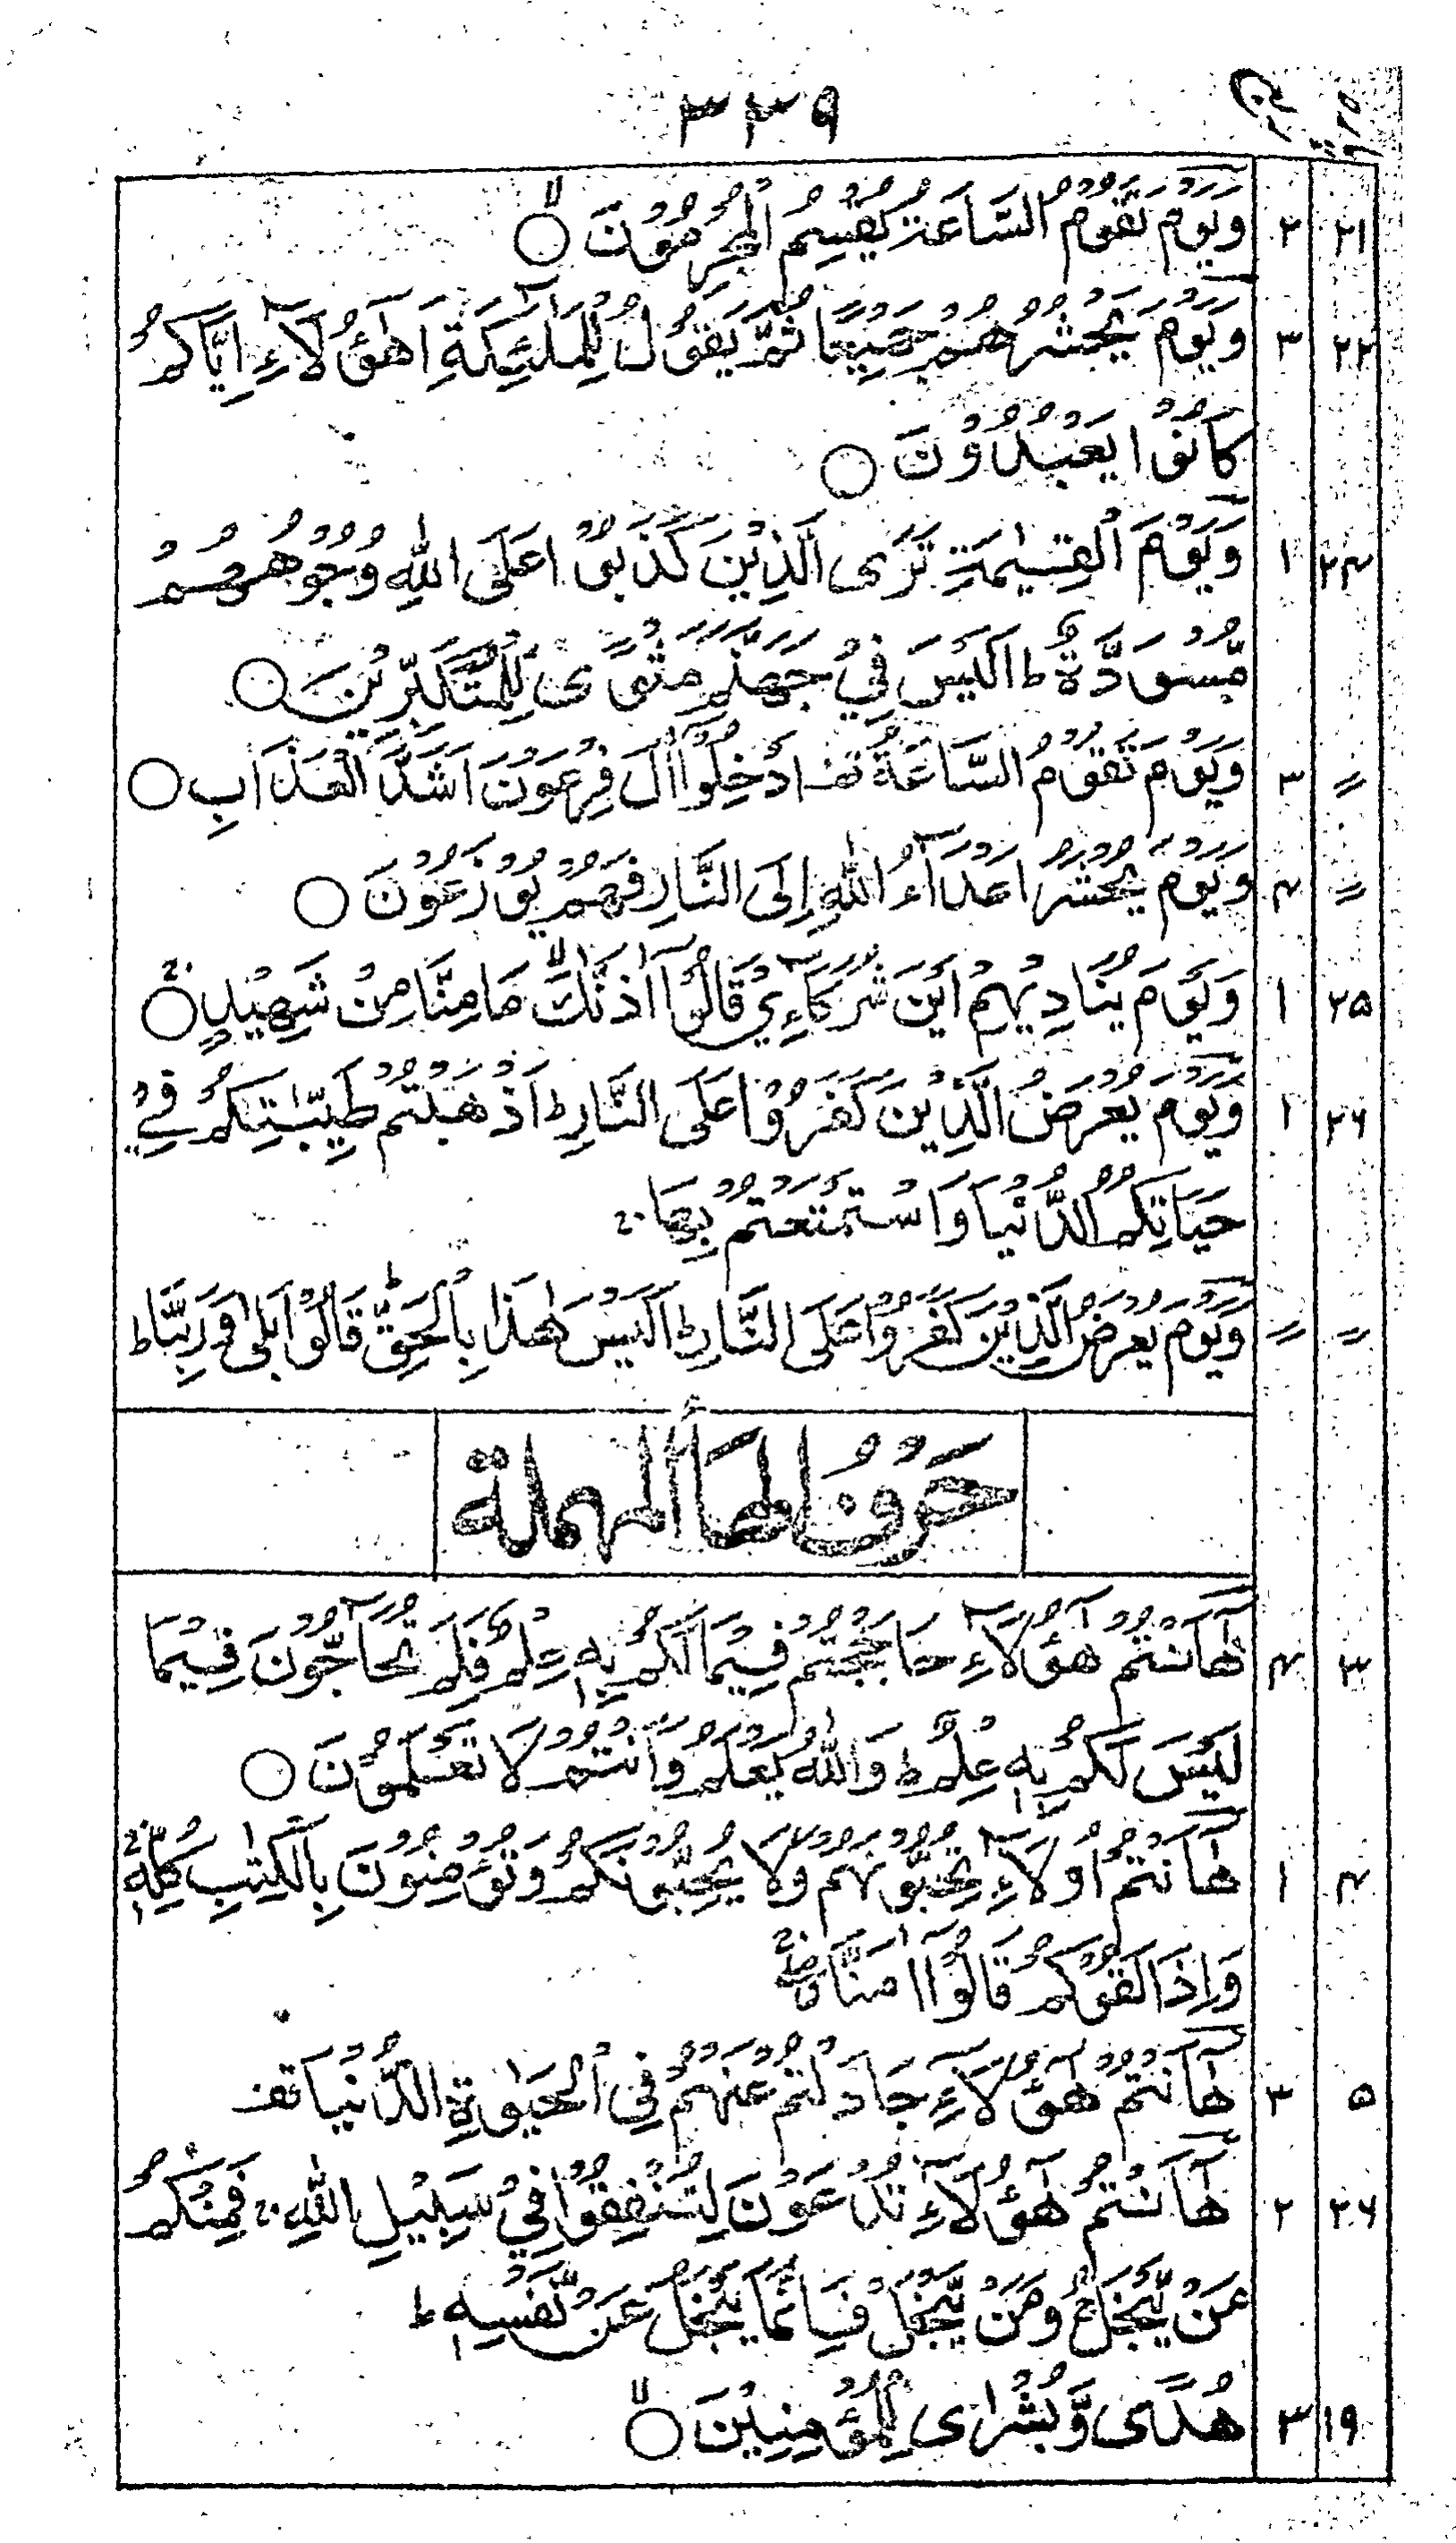 ۳۳۹
۲۱ ۲ وَيَوْمَ تَقُوْمُ السَّاعَةُ يُقْسِمُ الْمُجْرِمُوْنَ ۙ○
۲۲ ۳ وَيَوْمَ يَحْشُرُهُمْ جَمِيْعًا ثُمَّ يَقُوْلُ لِلْمَلٰٓئِكَةِ اَهٰٓؤُلَآءِ اِيَّاكُمْ
كَانُوْا يَعْبُدُوْنَ ○
۲۴ ۱ وَيَوْمَ الْقِيٰمَةِ تَرَى الَّذِيْنَ كَذَبُوْا عَلَى اللّٰهِ وُجُوْهُهُمْ
مُّسْوَدَّةٌ ط اَلَيْسَ فِيْ جَهَنَّمَ مَثْوًى لِّلْمُتَكَبِّرِيْنَ ○
〃 ۳ وَيَوْمَ تَقُوْمُ السَّاعَةُ قف اَدْخِلُوْٓا اٰلَ فِرْعَوْنَ اَشَدَّ الْعَذَابِ ○
〃 ۴ وَيَوْمَ يُحْشَرُ اَعْدَآءُ اللّٰهِ اِلَى النَّارِ فَهُمْ يُوْزَعُوْنَ ○
۲۵ ۱ وَيَوْمَ يُنَادِيْهِمْ اَيْنَ شُرَكَآءِيْ قَالُوْٓا اٰذَنّٰكَ ۙ مَا مِنَّا مِنْ شَهِيْدٍ ○
۲۶ ۲ وَيَوْمَ يُعْرَضُ الَّذِيْنَ كَفَرُوْا عَلَى النَّارِ ط اَذْهَبْتُمْ طَيِّبٰتِكُمْ فِيْ
حَيَاتِكُمُ الدُّنْيَا وَاسْتَمْتَعْتُمْ بِهَا ۚ
〃 〃 وَيَوْمَ يُعْرَضُ الَّذِيْنَ كَفَرُوْا عَلَى النَّارِ ط اَلَيْسَ هٰذَا بِالْحَقِّ ط قَالُوْا بَلٰى وَرَبِّنَا ط
حَرْفُ الهَاءِ المهملة
۳ ۴ هٰٓاَنْتُمْ هٰٓؤُلَآءِ حَاجَجْتُمْ فِيْمَا لَكُمْ بِهٖ عِلْمٌ فَلِمَ تُحَآجُّوْنَ فِيْمَا
لَيْسَ لَكُمْ بِهٖ عِلْمٌ ط وَاللّٰهُ يَعْلَمُ وَاَنْتُمْ لَا تَعْلَمُوْنَ ○
۴ ۱ هٰٓاَنْتُمْ اُولَآءِ تُحِبُّوْنَهُمْ وَلَا يُحِبُّوْنَكُمْ وَتُؤْمِنُوْنَ بِالْكِتٰبِ كُلِّهٖ ۚ
وَاِذَا لَقُوْكُمْ قَالُوْٓا اٰمَنَّا ۚ
۵ ۳ هٰٓاَنْتُمْ هٰٓؤُلَآءِ جَادَلْتُمْ عَنْهُمْ فِى الْحَيٰوةِ الدُّنْيَا قف
۲۶ ۲ هٰٓاَنْتُمْ هٰٓؤُلَآءِ تُدْعَوْنَ لِتُنْفِقُوْا فِيْ سَبِيْلِ اللّٰهِ ۚ فَمِنْكُمْ
مَّنْ يَّبْخَلُ ۚ وَمَنْ يَّبْخَلْ فَاِنَّمَا يَبْخَلُ عَنْ نَّفْسِهٖ ط
۱۹ ۳ هُدًى وَّبُشْرٰى لِلْمُؤْمِنِيْنَ ۙ○